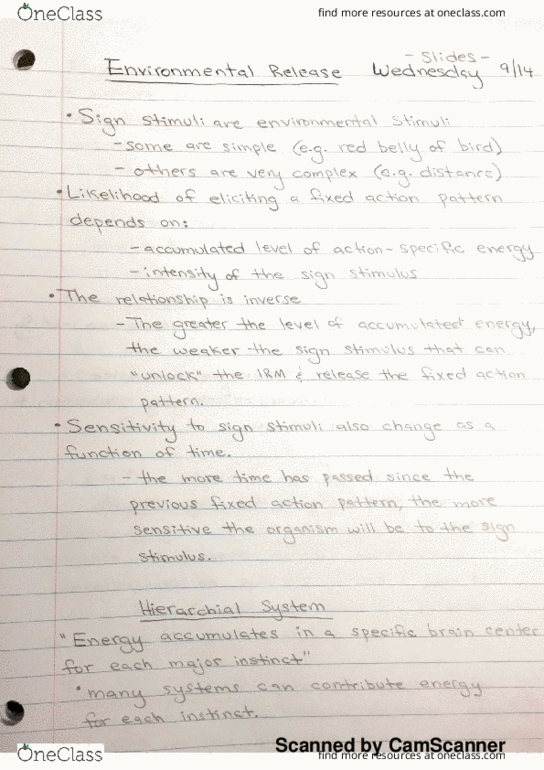 OneClass
find more resources at oneclass.com
- Slides -
Environmental Release Wednesday 9/14
• Sign stimuli are environmental stimuli
- some are simple (e.g. red belly of bird)
- others are very complex (e.g. distance)
• Likelihood of eliciting a fixed action pattern
depends on:
- accumulated level of action-specific energy
- intensity of the sign stimulus
• The relationship is inverse
- The greater the level of accumulated energy,
the weaker the sign stimulus that can
"unlock" the IRM & release the fixed action
pattern.
• Sensitivity to sign stimuli also change as a
function of time.
- the more time has passed since the
previous fixed action pattern, the more
sensitive the organism will be to the sign
stimulus.
Hierarchial System
"Energy accumulates in a specific brain center
for each major instinct"
• many systems can contribute energy
for each instinct.
Scanned by CamScanner
OneClass
find more resources at oneclass.com